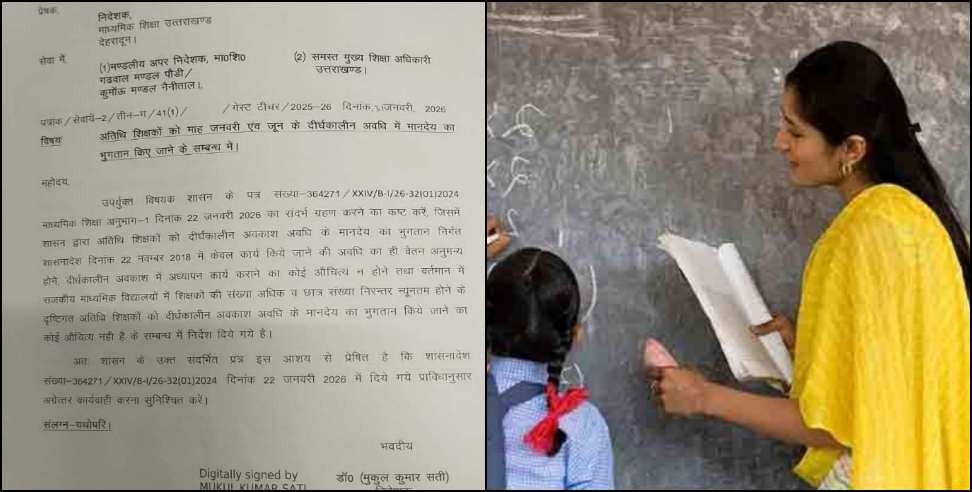 प्रेषक,
निदेशक,
माध्यमिक शिक्षा उत्तराखण्ड
देहरादून।
सेवा में,
(1)मण्डलीय अपर निदेशक, मा0शि0
गढवाल मण्डल पौडी/
कुमॉऊ मण्डल नैनीताल।
(2) समस्त मुख्य शिक्षा अधिकारी
उत्तराखण्ड।
पत्रांक/सेवायें-2/तीन-ग/41(1)/ /गेस्ट टीचर/2025-26 दिनांक, जनवरी, 2026
विषयः अतिथि शिक्षकों को माह जनवरी एंव जून के दीर्घकालीन अवधि में मानदेय का
भुगतान किए जाने के सम्बन्ध में।
महोदय,
उपर्युक्त विषयक शासन के पत्र संख्या-364271/XXIV/B-I/26-32(01)2024
माध्यमिक शिक्षा अनुभाग-1 दिनांक 22 जनवरी 2026 का संदर्भ ग्रहण करने का कष्ट करें, जिसमें
शासन द्वारा अतिथि शिक्षकों को दीर्घकालीन अवकाश अवधि के मानदेय का भुगतान निर्गत
शासनादेश दिनांक 22 नवम्बर 2018 में केवल कार्य किये जाने की अवधि का ही वेतन अनुमन्य
होने, दीर्घकालीन अवकाश में अध्यापन कार्य कराने का कोई औचित्य न होने तथा वर्तमान में
राजकीय माध्यमिक विद्यालयों में शिक्षकों की संख्या अधिक व छात्र संख्या निरन्तर न्यूनतम होने के
दृष्टिगत अतिथि शिक्षकों को दीर्घकालीन अवकाश अवधि के मानदेय का भुगतान किये जाने का
कोई औचित्य नहीं है के सम्बन्ध में निर्देश दिये गये है।
अतः शासन के उक्त संदर्भित प्रत्र इस आशय से प्रेषित है कि शासनादेश
संख्या-364271/XXIV/B-I/26-32(01)2024 दिनांक 22 जनवरी 2026 में दिये गये प्राविधानुसार
अग्रेत्तर कार्यवाही करना सुनिश्चित करें।
संलग्न-यथोपरि।
भवदीय
Digitally signed by
MUKUL KUMAR SATI
डॉ0 (मुकुल कुमार सती)
निदेशक